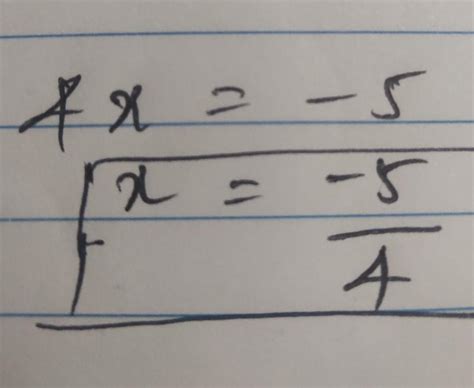 4x = -5
x = -5/4